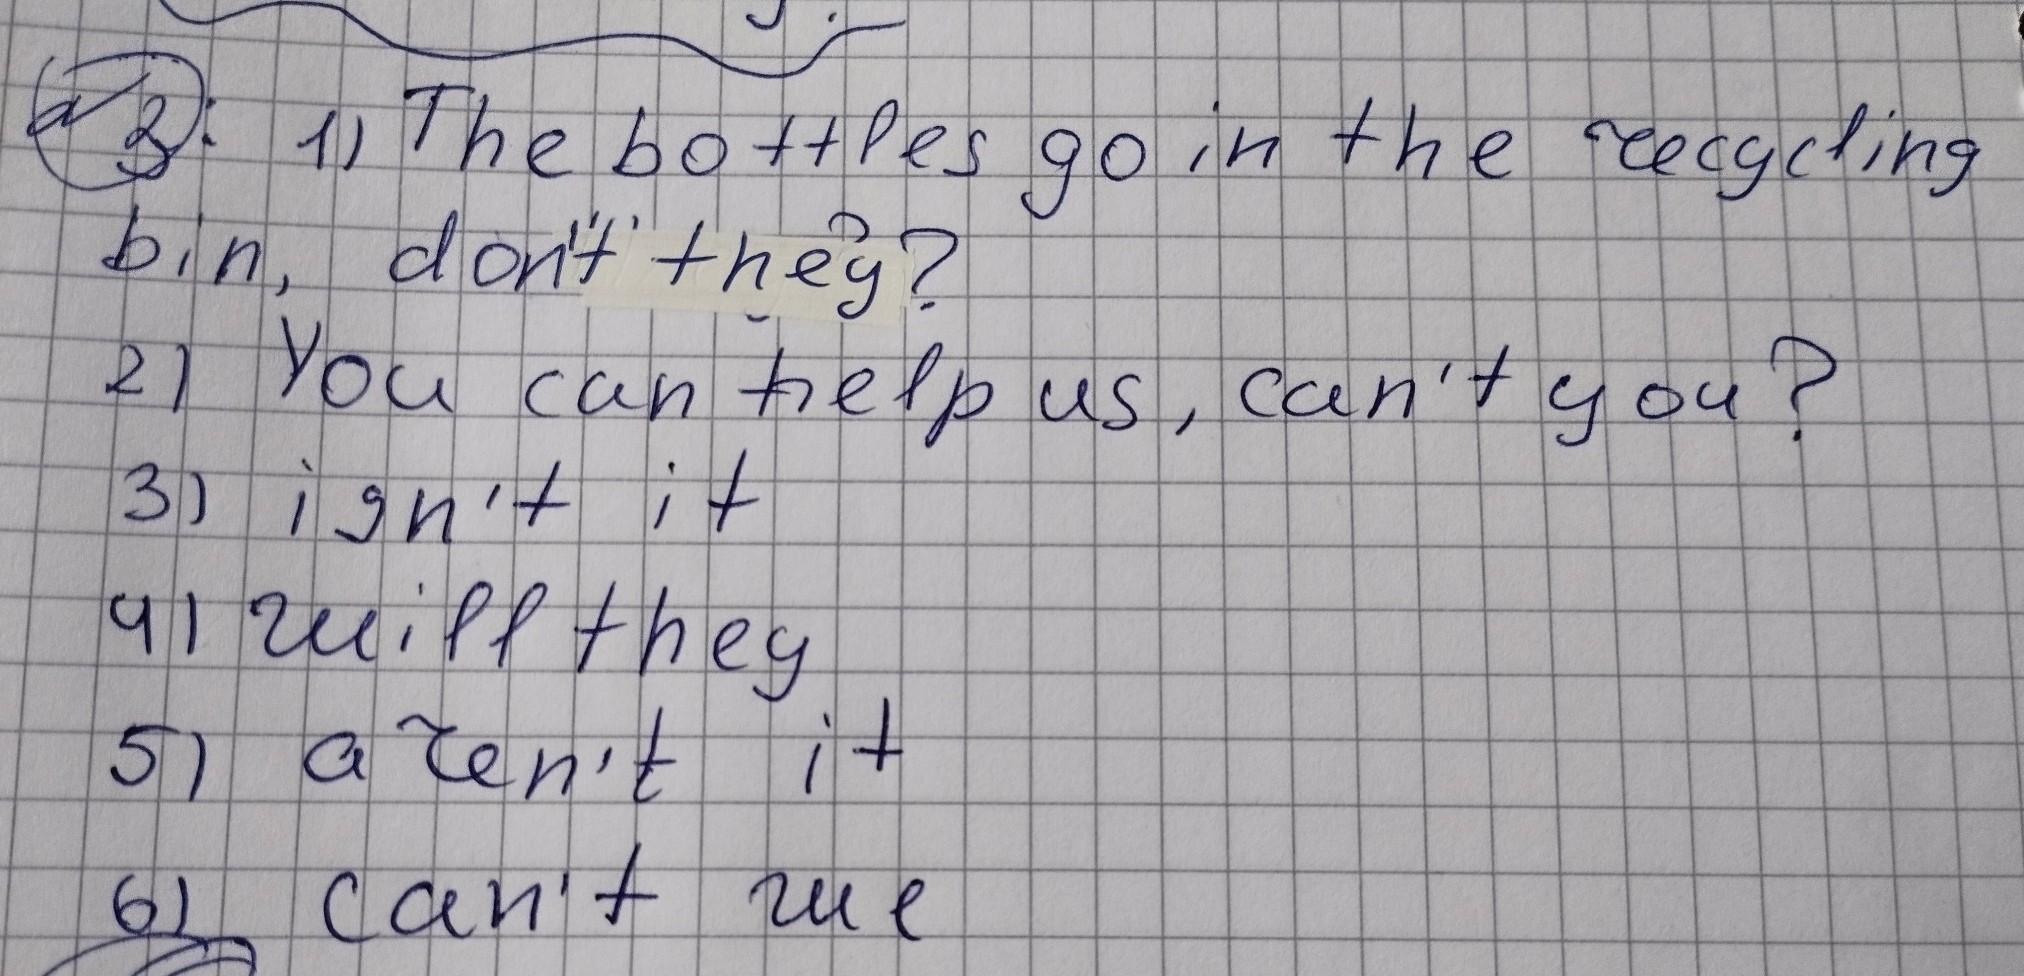 3: 1) The bottles go in the recycling
bin, don't they?
2) You can help us, can't you?
3) isn't it
4) will they
5) aren't it
6) can't we